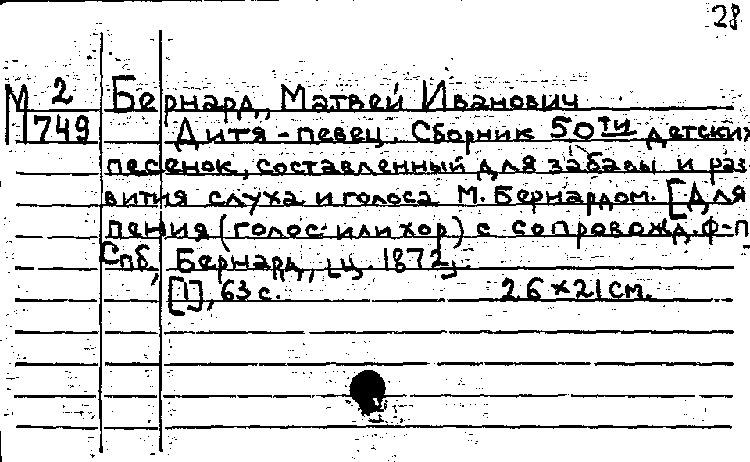 28
М 2 Бернард, Матвей Иванович
749 Дитя-певец. Сборник 50ти детских
песенок, составленный для забавы и раз
вития слуха и голоса М. Бернардом. [Для
пения (голос или хор) с сопровожд. ф-п
Спб, Бернард, ц. 1872]
[1], 63 с. 26×21 см.